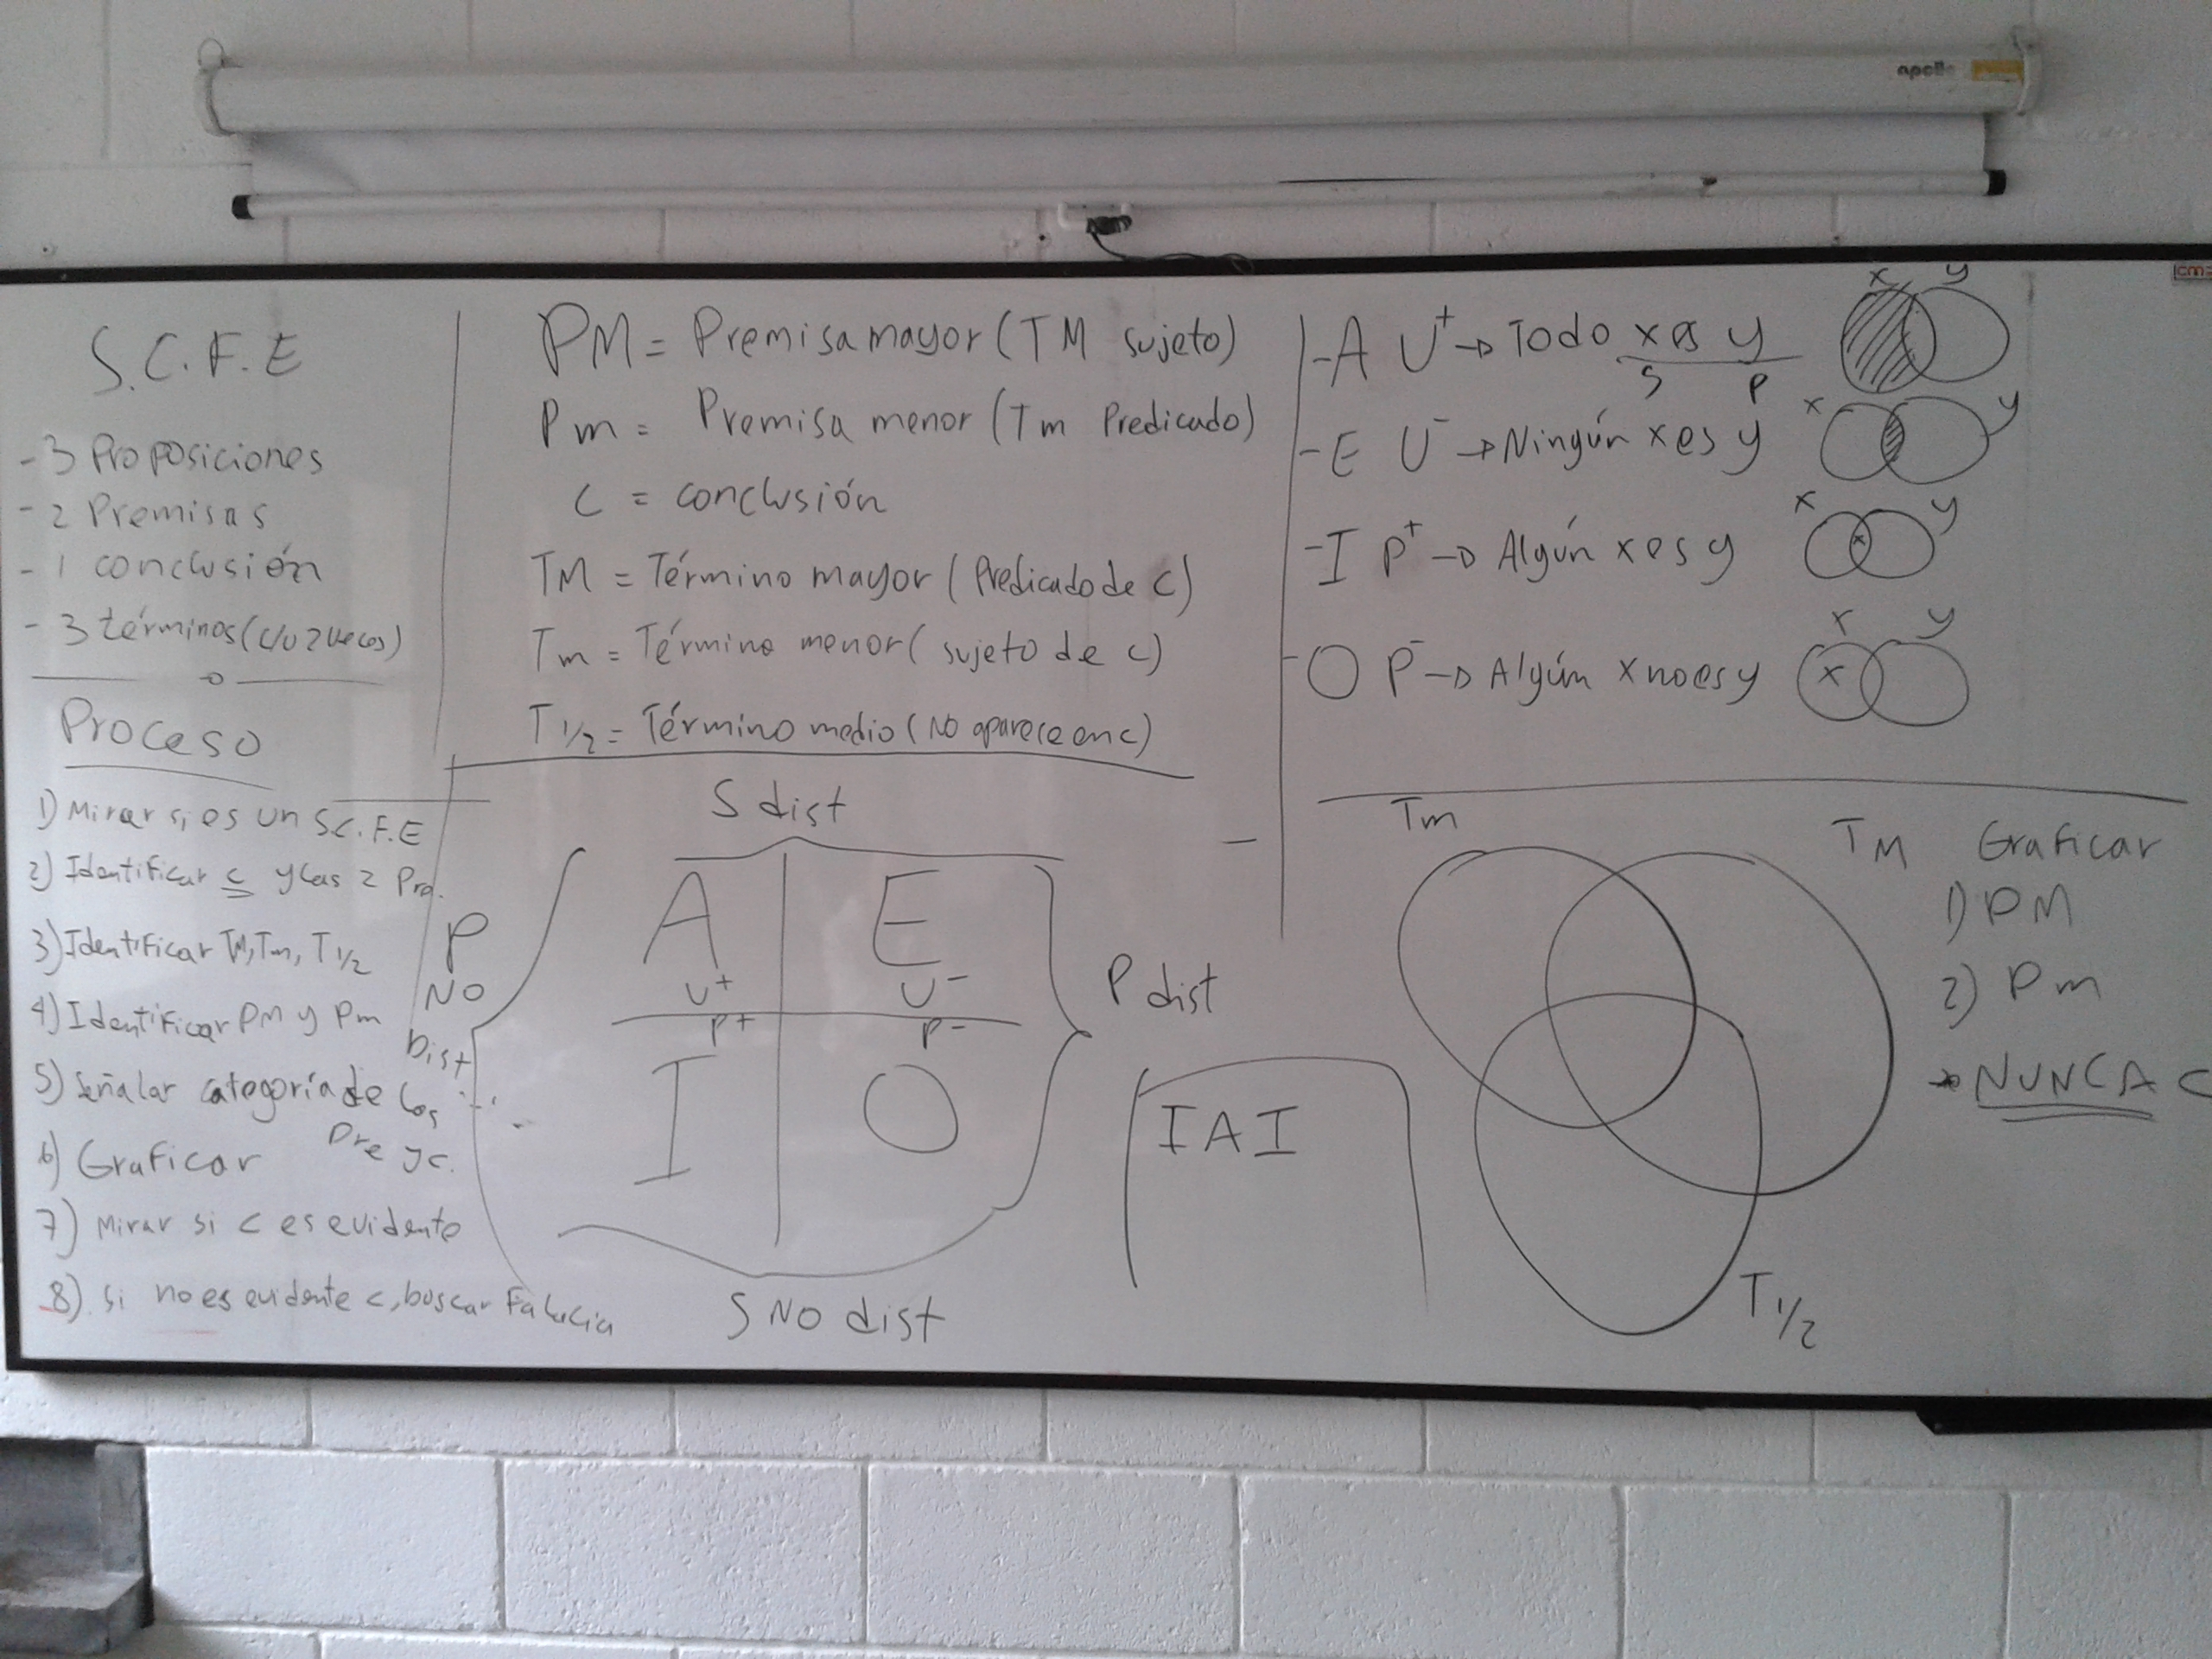 apollo
S.C.F.E
- 3 Proposiciones
- 2 Premisas
- 1 conclusión
- 3 términos (c/u 2 veces)
Proceso
1) Mirar si es un S.C.F.E
2) Identificar c y las 2 Pre.
3) Identificar TM, Tm, T 1/2
4) Identificar PM y Pm
5) Señalar categoría de los
Pre y c.
6) Graficar
7) Mirar si c es evidente
8) Si no es evidente c, buscar Falacia
PM = Premisa mayor (TM sujeto)
Pm = Premisa menor (Tm Predicado)
C = conclusión
TM = Término mayor (Predicado de c)
Tm = Término menor (sujeto de c)
T 1/2 = Término medio (No aparece en c)
-A U+ → Todo x es y
S P
x y
-E U- → Ningún x es y
x y
-I P+ → Algún x es y
x y
x
-O P- → Algún x no es y
x y
x
S dist
P
NO
Dist
A E
U+ U-
P+ P-
I O
P dist
S NO dist
IAI
Tm
TM
T 1/2
Graficar
1) PM
2) Pm
→ NUNCA C